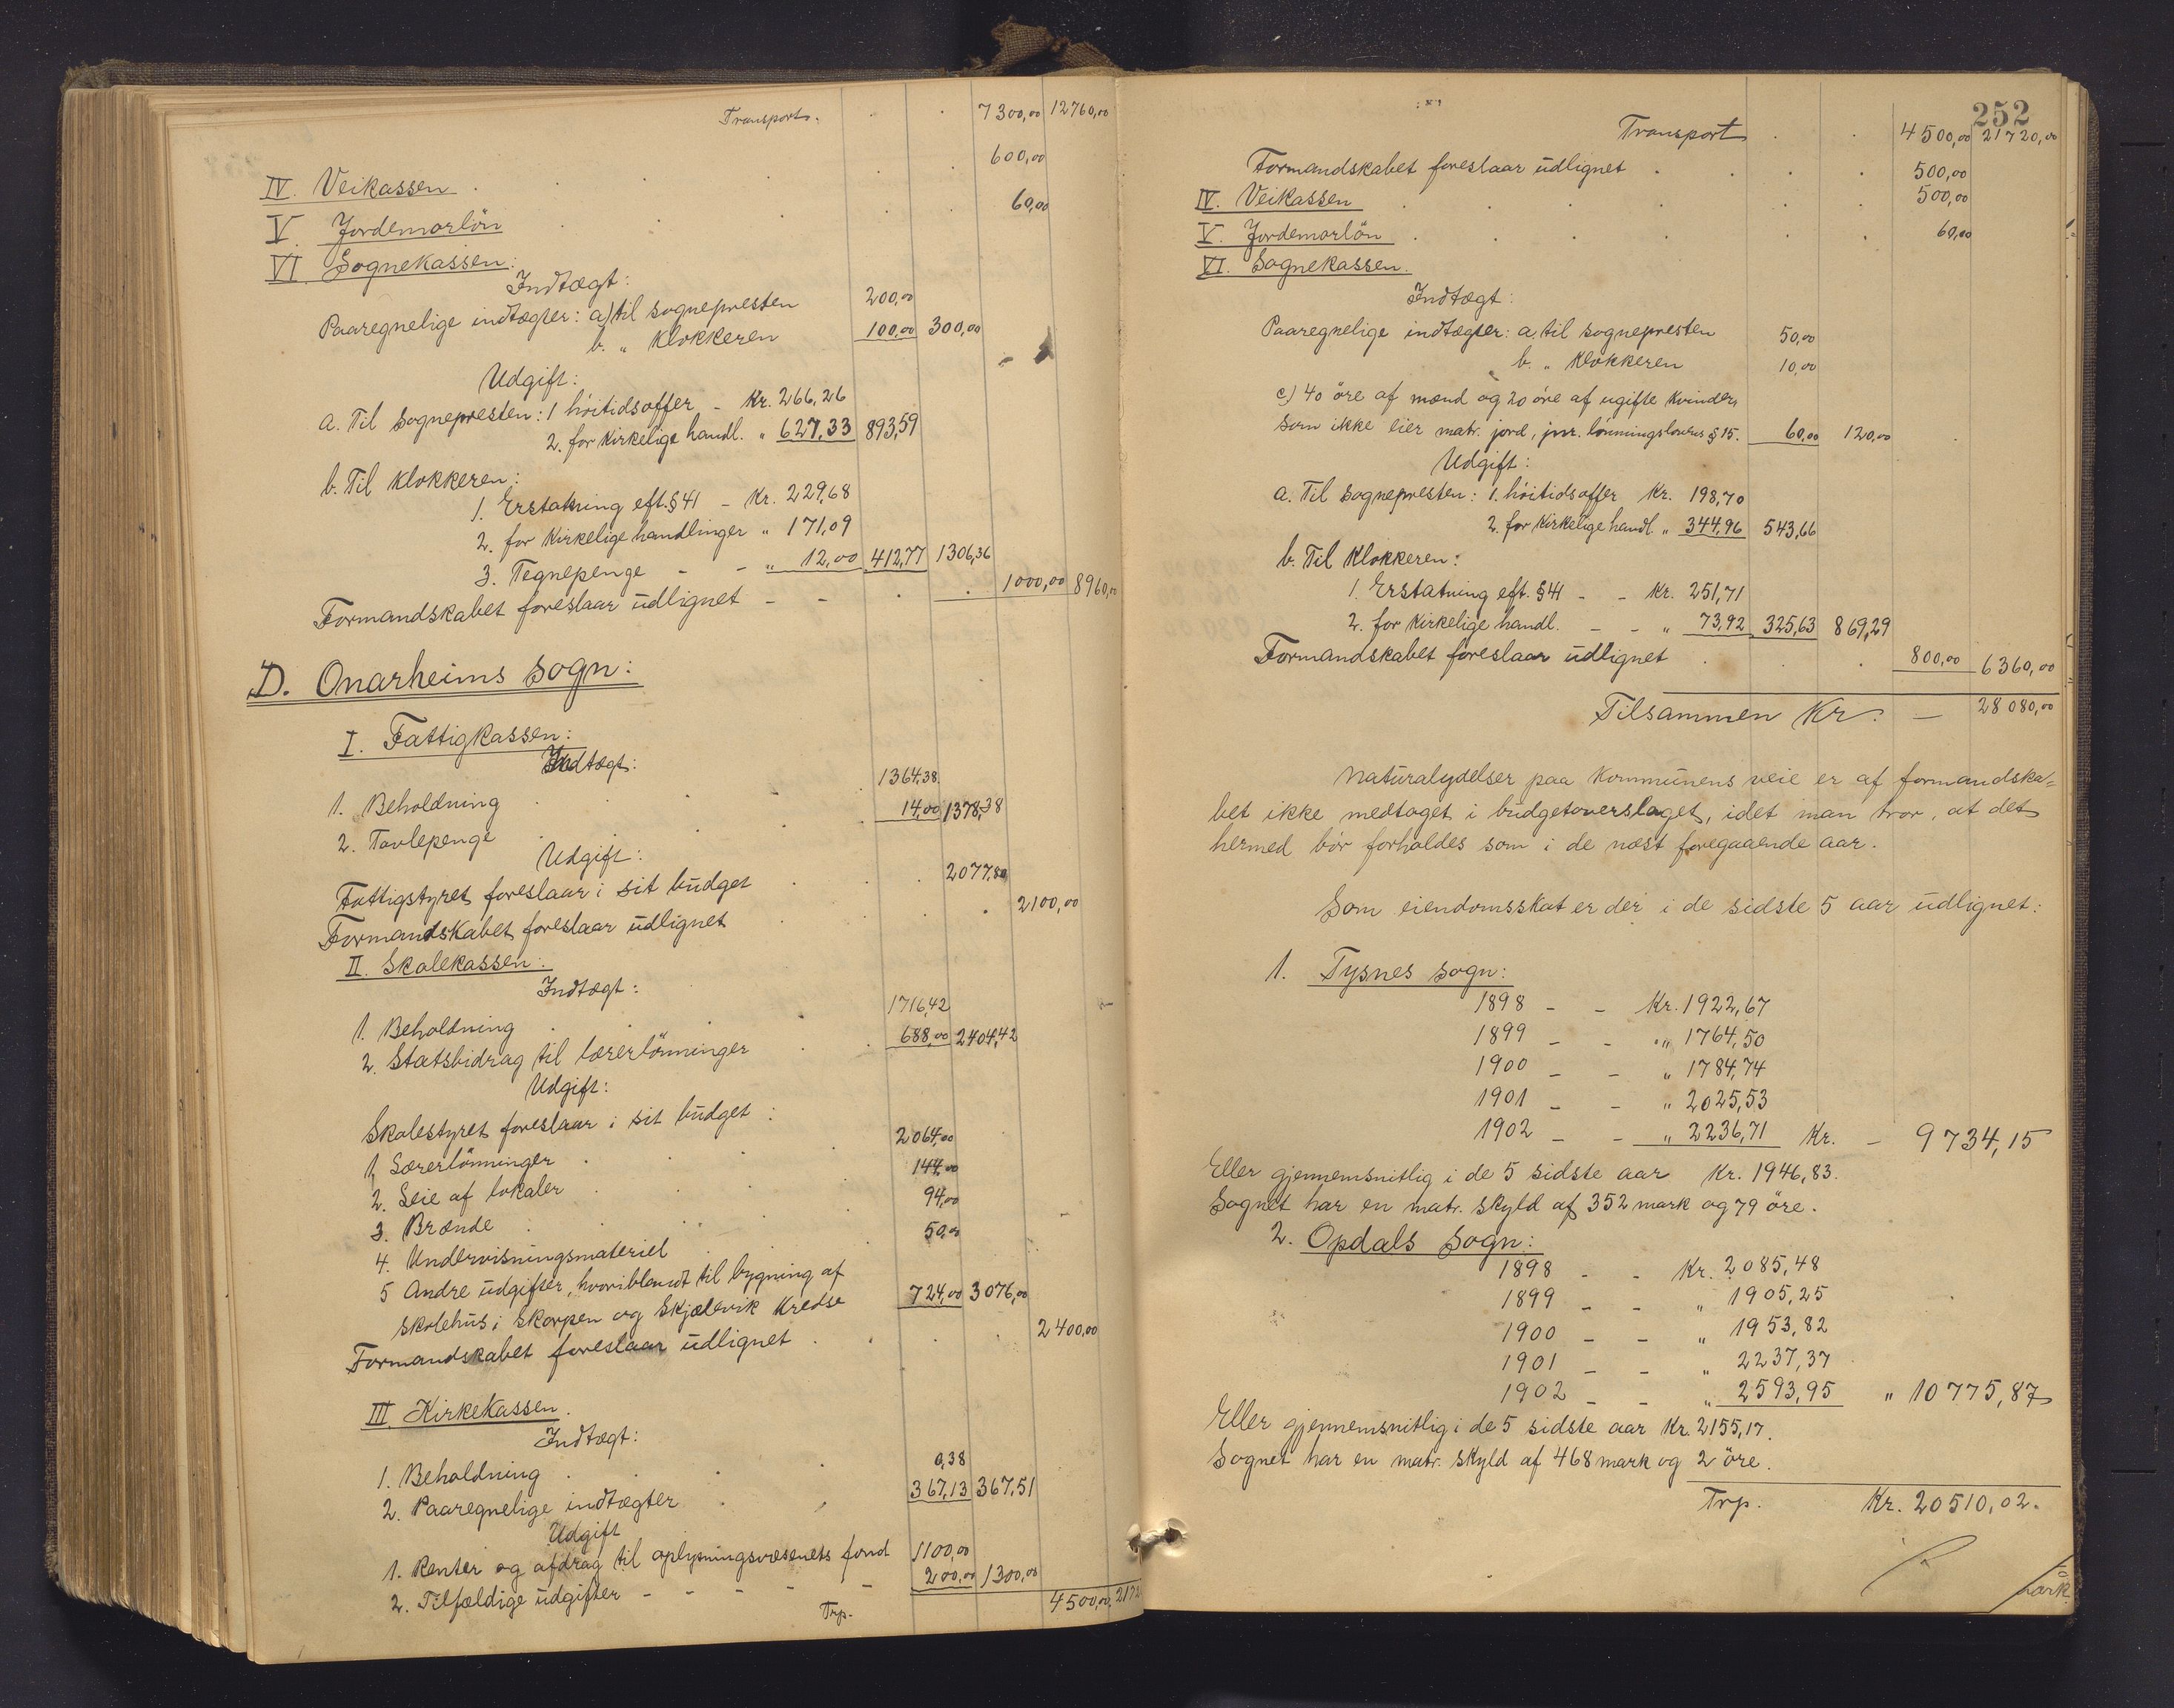 Transport. 7300,00 12760,00
IV. Veikassen . . . . 600,00
V. Jordemorlön . . . . 60,00
VI. Sognekassen:
Indtægt:
Paaregnelige indtægter: a) til sognepresten 200,00
b. " klokkeren 100,00 300,00
Udgift:
a. Til sognepresten: 1 höitidsoffer - Kr. 266,26
2. for kirkelige handl. " 627,33 893,59
b. Til klokkeren:
1. Erstatning eft. § 41 - Kr. 229,68
2. for kirkelige handlinger " 171,09
3. Tegnepenge - - " 12,00 412,77 1306,36
Formandskabet foreslaar udlignet - - . . 1000,00 8960,00
D. Onarheims sogn:
I. Fattigkassen:
Indtægt:
1. Beholdning . . . 1364,38
2. Tavlepenge . . . 14,00 1378,38
Udgift:
Fattigstyret foreslaar i sit budget . . 2077,80
Formandskabet foreslaar udlignet . . . 2100,00
II. Skolekassen:
Indtægt:
1. Beholdning . . . 1716,42
2. Statsbidrag til lærerlönninger . . 688,00 2404,42
Udgift:
Skolestyret foreslaar i sit budget:
1. Lærerlönninger . . . 2064,00
2. Leie af lokaler . . . 144,00
3. Brænde . . . 94,00
4. Undervisningsmateriel . . . 50,00
5 Andre udgifter, hvoriblandt til bygning af
skolehus i Skorpen og Skjælevik kredse 724,00 3076,00
Formandskabet foreslaar udlignet . . . . 2400,00
III. Kirkekassen.
Indtægt:
1. Beholdning . . . 0,38
2. Paaregnelige indtægter . . 367,13 367,51
Udgift
1. Renter og afdrag til oplysningsvæsenets fond 1100,00
2. Tilfældige udgifter - - - - - 200,00 1300,00
Trp. 4500,00 2172
252
Transport . . 4500,00 21720,00
Formandskabet foreslaar udlignet . . . . 500,00
IV. Veikassen . . . . . . 500,00
V. Jordemorlön . . . . . 60,00
VI. Sognekassen.
Indtægt:
Paaregnelige indtægter: a. til sognepresten 50,00
b. " klokkeren 10,00
c.) 40 öre af mænd og 20 öre af ugifte kvinder,
som ikke eier matr. jord, jvnr. lönningslovens § 15. 60,00 120,00
Udgift:
a. Til sognepresten: 1. höitidsoffer Kr. 198,70
2. for kirkelige handl. " 344,96 543,66
b. Til klokkeren:
1. Erstatning eft. § 41 - - Kr. 251,71
2. for kirkelige handl. - - " 73,92 325,63 869,29
Formandskabet foreslaar udlignet . . . 800,00 6360,00
Tilsammen Kr. — 28080,00
Naturalydelser paa kommunens veie er af formandska=
bet ikke medtaget i budgetoverslaget, idet man tror, at det
hermed bör forholdes som i de næst foregaaende aar.
Som eiendomsskat er der i de sidste 5 aar udlignet:
1. Tysnes sogn:
1898 - - Kr. 1922,67
1899 - - " 1764,50
1900 - - " 1784,74
1901 - - " 2025,53
1902 - - " 2236,71 Kr. - 9734,15
Eller gjennemsnitlig i de 5 sidste aar Kr. 1946,83.
Sognet har en matr. skyld af 352 mark og 79 öre.
2. Opdals sogn:
1898 - - Kr. 2085,48
1899 - - " 1905,25
1900 - - " 1953,82
1901 - - " 2237,37
1902 - - " 2593,95 " 10775,87
Eller gjennemsnitlig i de 5 sidste aar Kr. 2155,17.
Sognet har en matr. skyld af 468 mark og 2 öre.
Trp. Kr. 20510,02.